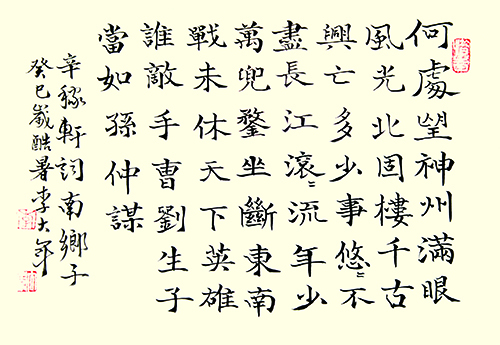 何處望神州滿眼
風光北固樓千古
興亡多少事悠〻不
盡長江滾〻流年少
萬兜鍪坐斷東南
戰未休天下英雄
誰敵手曹劉生子
當如孫仲謀
辛稼軒詞南鄉子
癸巳歲酷暑李大年